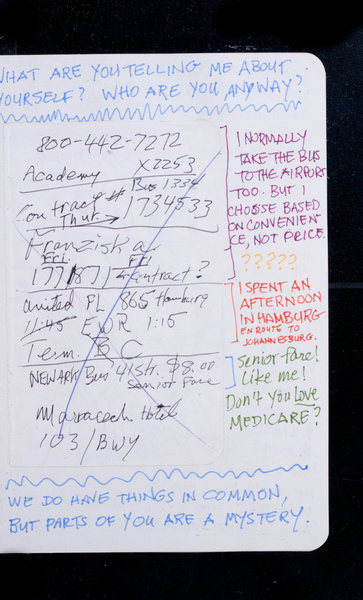 WHAT ARE YOU TELLING ME ABOUT
YOURSELF? WHO ARE YOU, ANYWAY?
800-442-7272
X2253
Academy Bus 1334
Contract # 1734533
Thur →
Franziska
Fri. Fri
177187 contract?
United FL 865 Hamburg
11:45 EWR 1:15
Term. B C
NEWARK Bus 41 Str. $8.00
Senior Fare
Marracech Hotel
103/BWY
I NORMALLY
TAKE THE BUS
TO THE AIRPORT
TOO. BUT I
CHOOSE BASED
ON CONVENIEN
CE, NOT PRICE.
?????
I SPENT AN
AFTERNOON
IN HAMBURG
EN ROUTE TO
JOHANNESBURG.
Senior Fare!
Like me!
Don't you Love
MEDICARE?
WE DO HAVE THINGS IN COMMON,
BUT PARTS OF YOU ARE A MYSTERY.